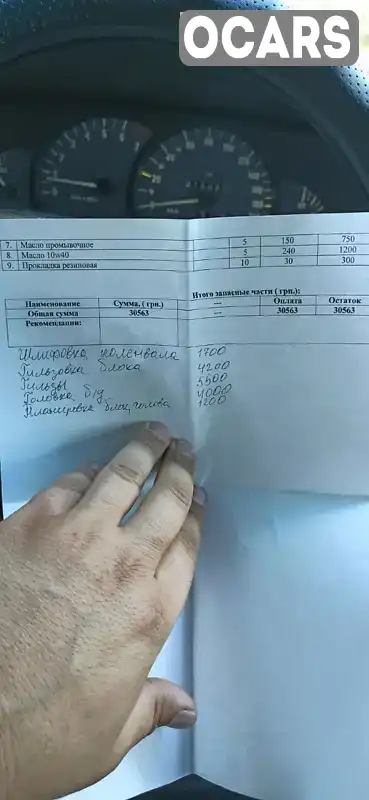 OCARS
7. Масло промывочное 5 150 750
8. Масло 10w40 5 240 1200
9. Прокладка резиновая 10 30 300
Итого запасные части ( грн.):
Наименование Сумма, ( грн.) --- Оплата Остаток
Общая сумма 30563 --- 30563 30563
Рекомендации:
Шлифовка коленвала 1700
Гильзовка блока 4200
Гильзы 5500
Головка б/у 4000
Планировка блок, голова 1200